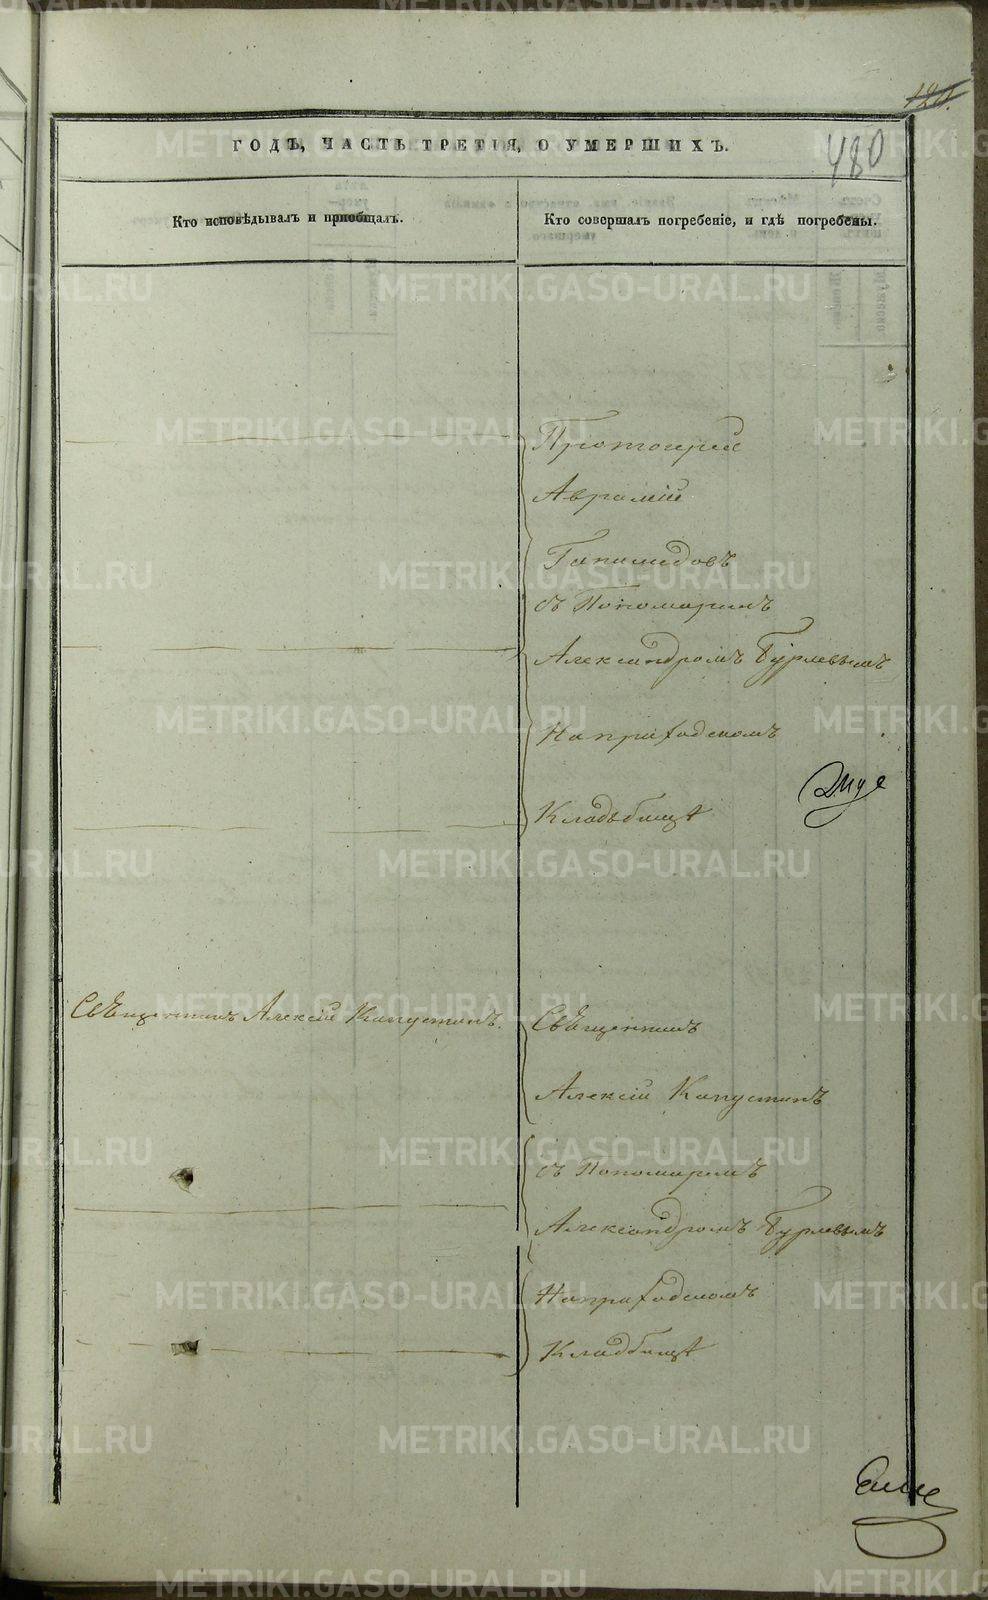 120.
480
ГОДЪ, ЧАСТЬ ТРЕТІЯ, О УМЕРШИХЪ.
Кто исповѣдывалъ и пріобщалъ.
Кто совершалъ погребеніе, и гдѣ погребены.
Протоіерей
Аврамій
съ Пономаремъ
Александромъ Бурлевымъ
На приходскомъ
Кладьбищѣ
Свѣщенникъ Алексій Капустинъ.
Свѣщенникъ
Алексій Капустинъ
съ Пономаремъ
Александромъ Бурлевымъ
На приходскомъ
Кладбищѣ
METRIKI.GASO-URAL.RU